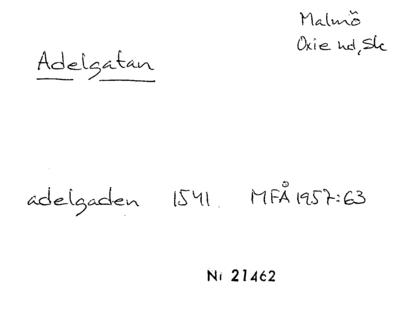 Malmö
Oxie hd, Sk
Adelgatan
adelgaden 1541. MFÅ 1957:63
Ni 21462